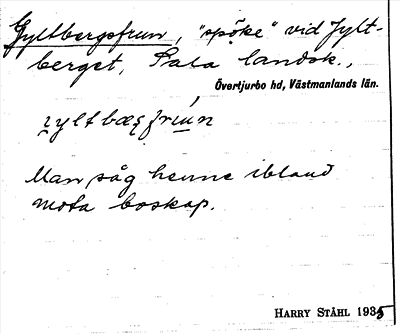 Gyltbergsfrun, "spöke" vid Gylt-
berget, Sala landsk.,
Övertjurbo hd, Västmanlands län.
Man såg henne ibland
mota boskap.
HARRY STÅHL 1935